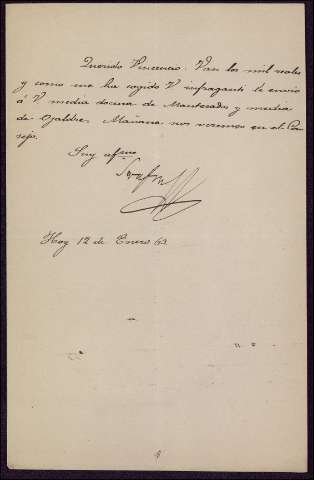 Querido Venancio: Van los mil reales
y como me ha cogido V infraganti le envio
á V media docena de Mantecadas y media
de Ojaldres. Mañana nos veremos en el Con-
sejo.
Suy afmo
Hoy 12 de Enero 63